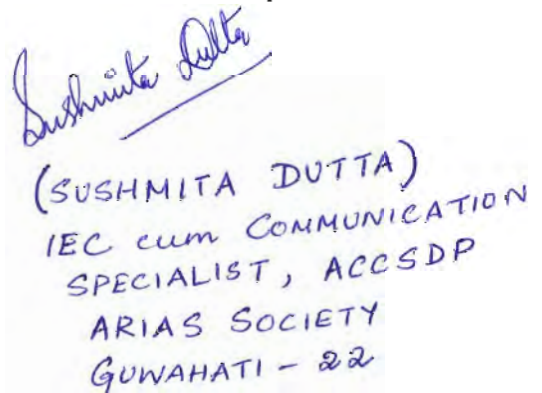 Sushmita Dutta
(SUSHMITA DUTTA)
IEC cum COMMUNICATION
SPECIALIST, ACCSDP
ARIAS SOCIETY
GUWAHATI - 22